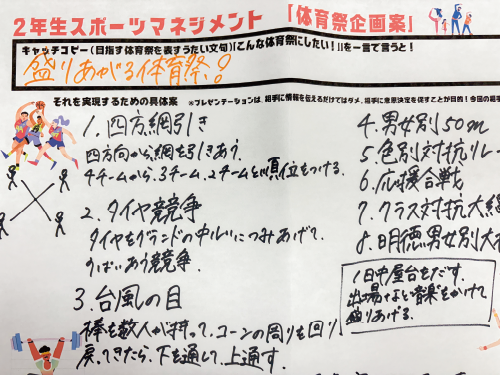 2年生スポーツマネジメント 「体育祭企画案」
キャッチコピー(目指す体育祭を表すうたい文句)「こんな体育祭にしたい!」を一言で言うと!
盛りあがる体育祭!
それを実現するための具体案 ※プレゼンテーションは、相手に情報を伝えるだけではダメ。相手に意思決定を促すことが目的!今回の相手
1. 四方綱引き
四方向から、綱を引きあう。
4チームから、3チーム、2チームと順位をつける。
2. タイヤ競争
タイヤをグランドの中心につみあげて、
うばいあう競争。
3. 台風の目
棒を数人が持って、コーンの周りを回り
戻ってきたら、下を通して、上通す。
4. 男女別50m
5. 色別対抗リレー
6. 応援合戦
7. クラス対抗大縄
8. 明徳男女別大
1日中屋台をだす。
出場するとき音楽をかけて
盛りあげる。